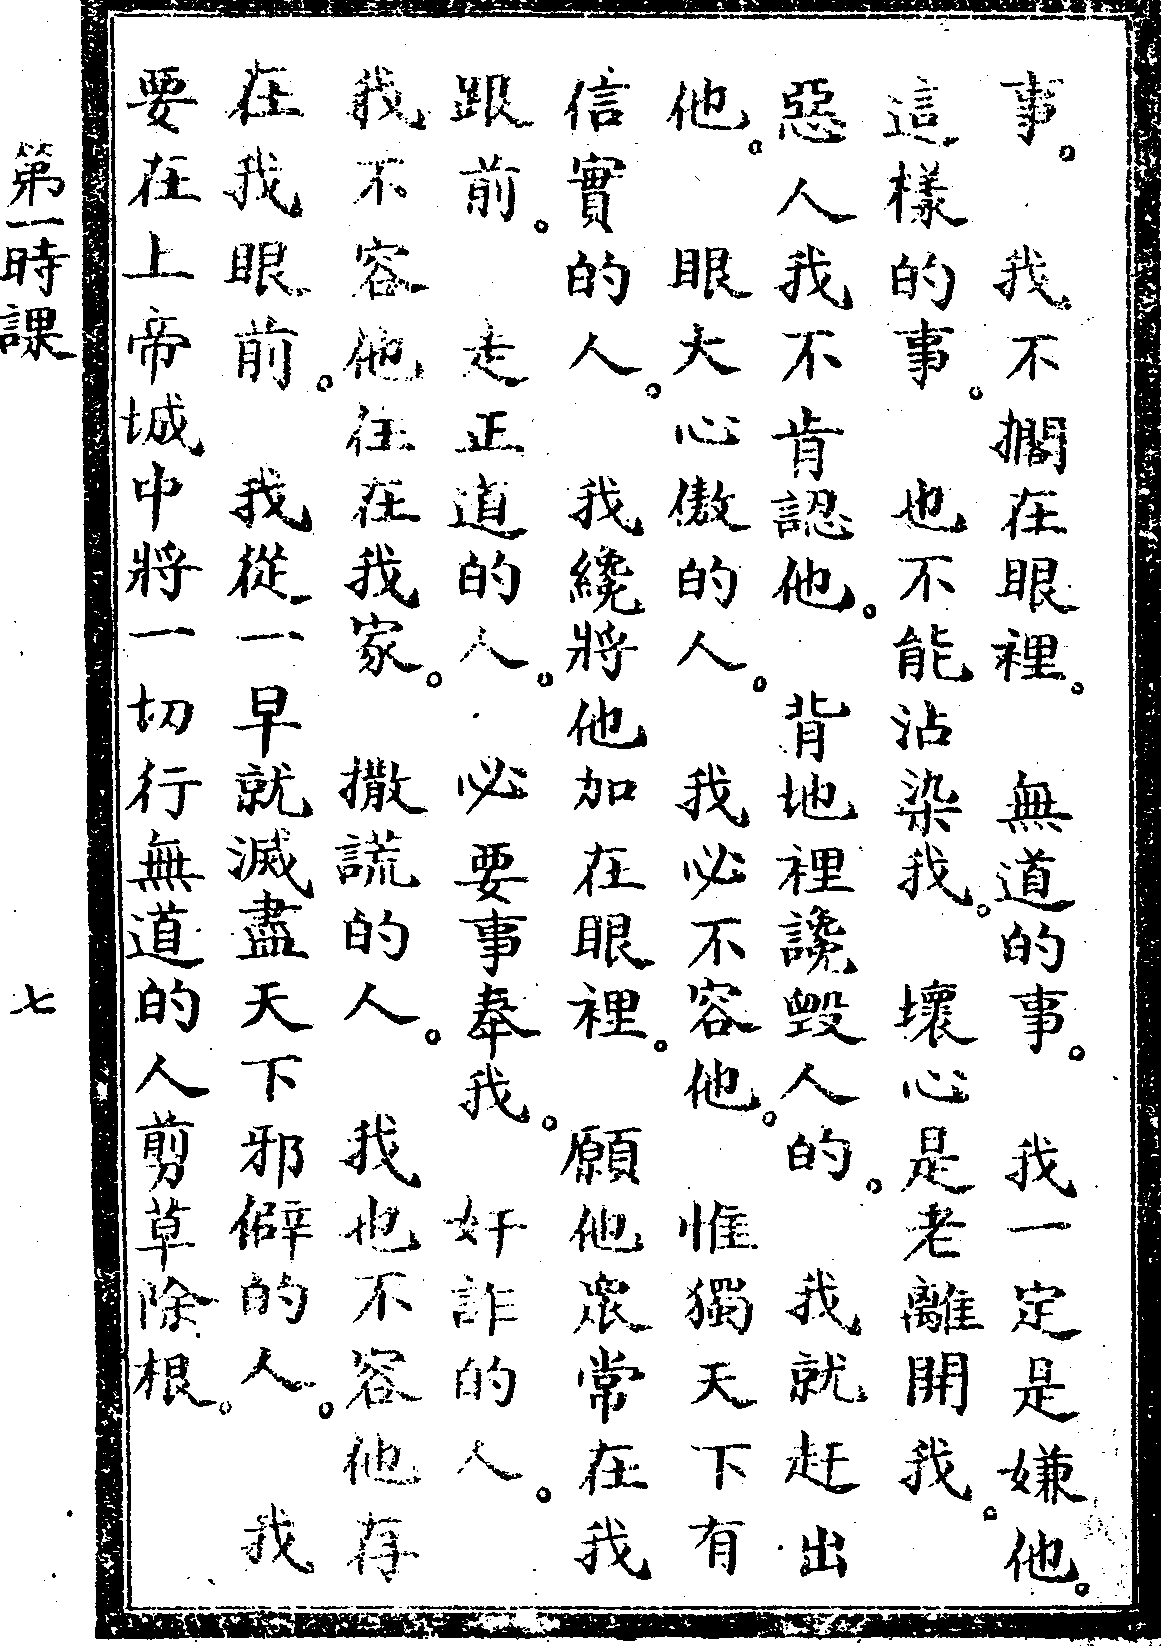 事。 我不擱在眼裡。 無道的事。 我一定是嫌他。
這樣的事。 也不能沾染我。 壞心是老離開我。
惡人我不肯認他。 背地裡讒毀人的。 我就赶出
他。 眼大心傲的人。 我必不容他。 惟獨天下有
信實的人。 我纔將他加在眼裡。 願他衆常在我
跟前。 走正道的人。 必要事奉我。 奸詐的人。
我不容他住在我家。 撒謊的人。 我也不容他存
在我眼前。 我從一早就滅盡天下邪僻的人。 我
要在上帝城中將一切行無道的人剪草除根。
第一時課
七